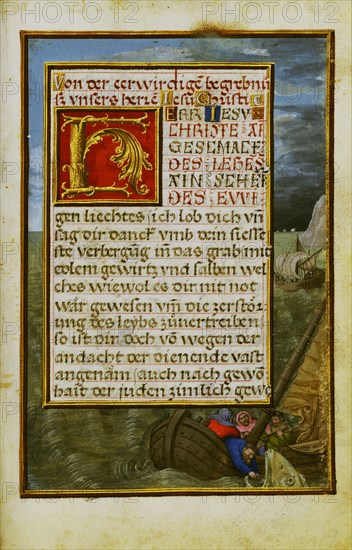 Von der eerwirdigē begrebnü
ß unsers herrē Iesu Christi
HERR IESV
CHRISTE A͂
GESCHMACK
DES LEBES
AIN SCHEP
DES EWI
gen liechtes (ich lob dich vn̄
sag dir danck vmb dein siesse
ste verbergūg in das grab mit
edlem gewirtz vnd salben wel
ches wiewol es dir not
wār gewesen vm̄ die zerstör
ung des leybs zůuertreiben
so ist dir doch vō wegen der
andacht der dienende vast
angenām (auch nach gewō
hait der juden zimlich gewe